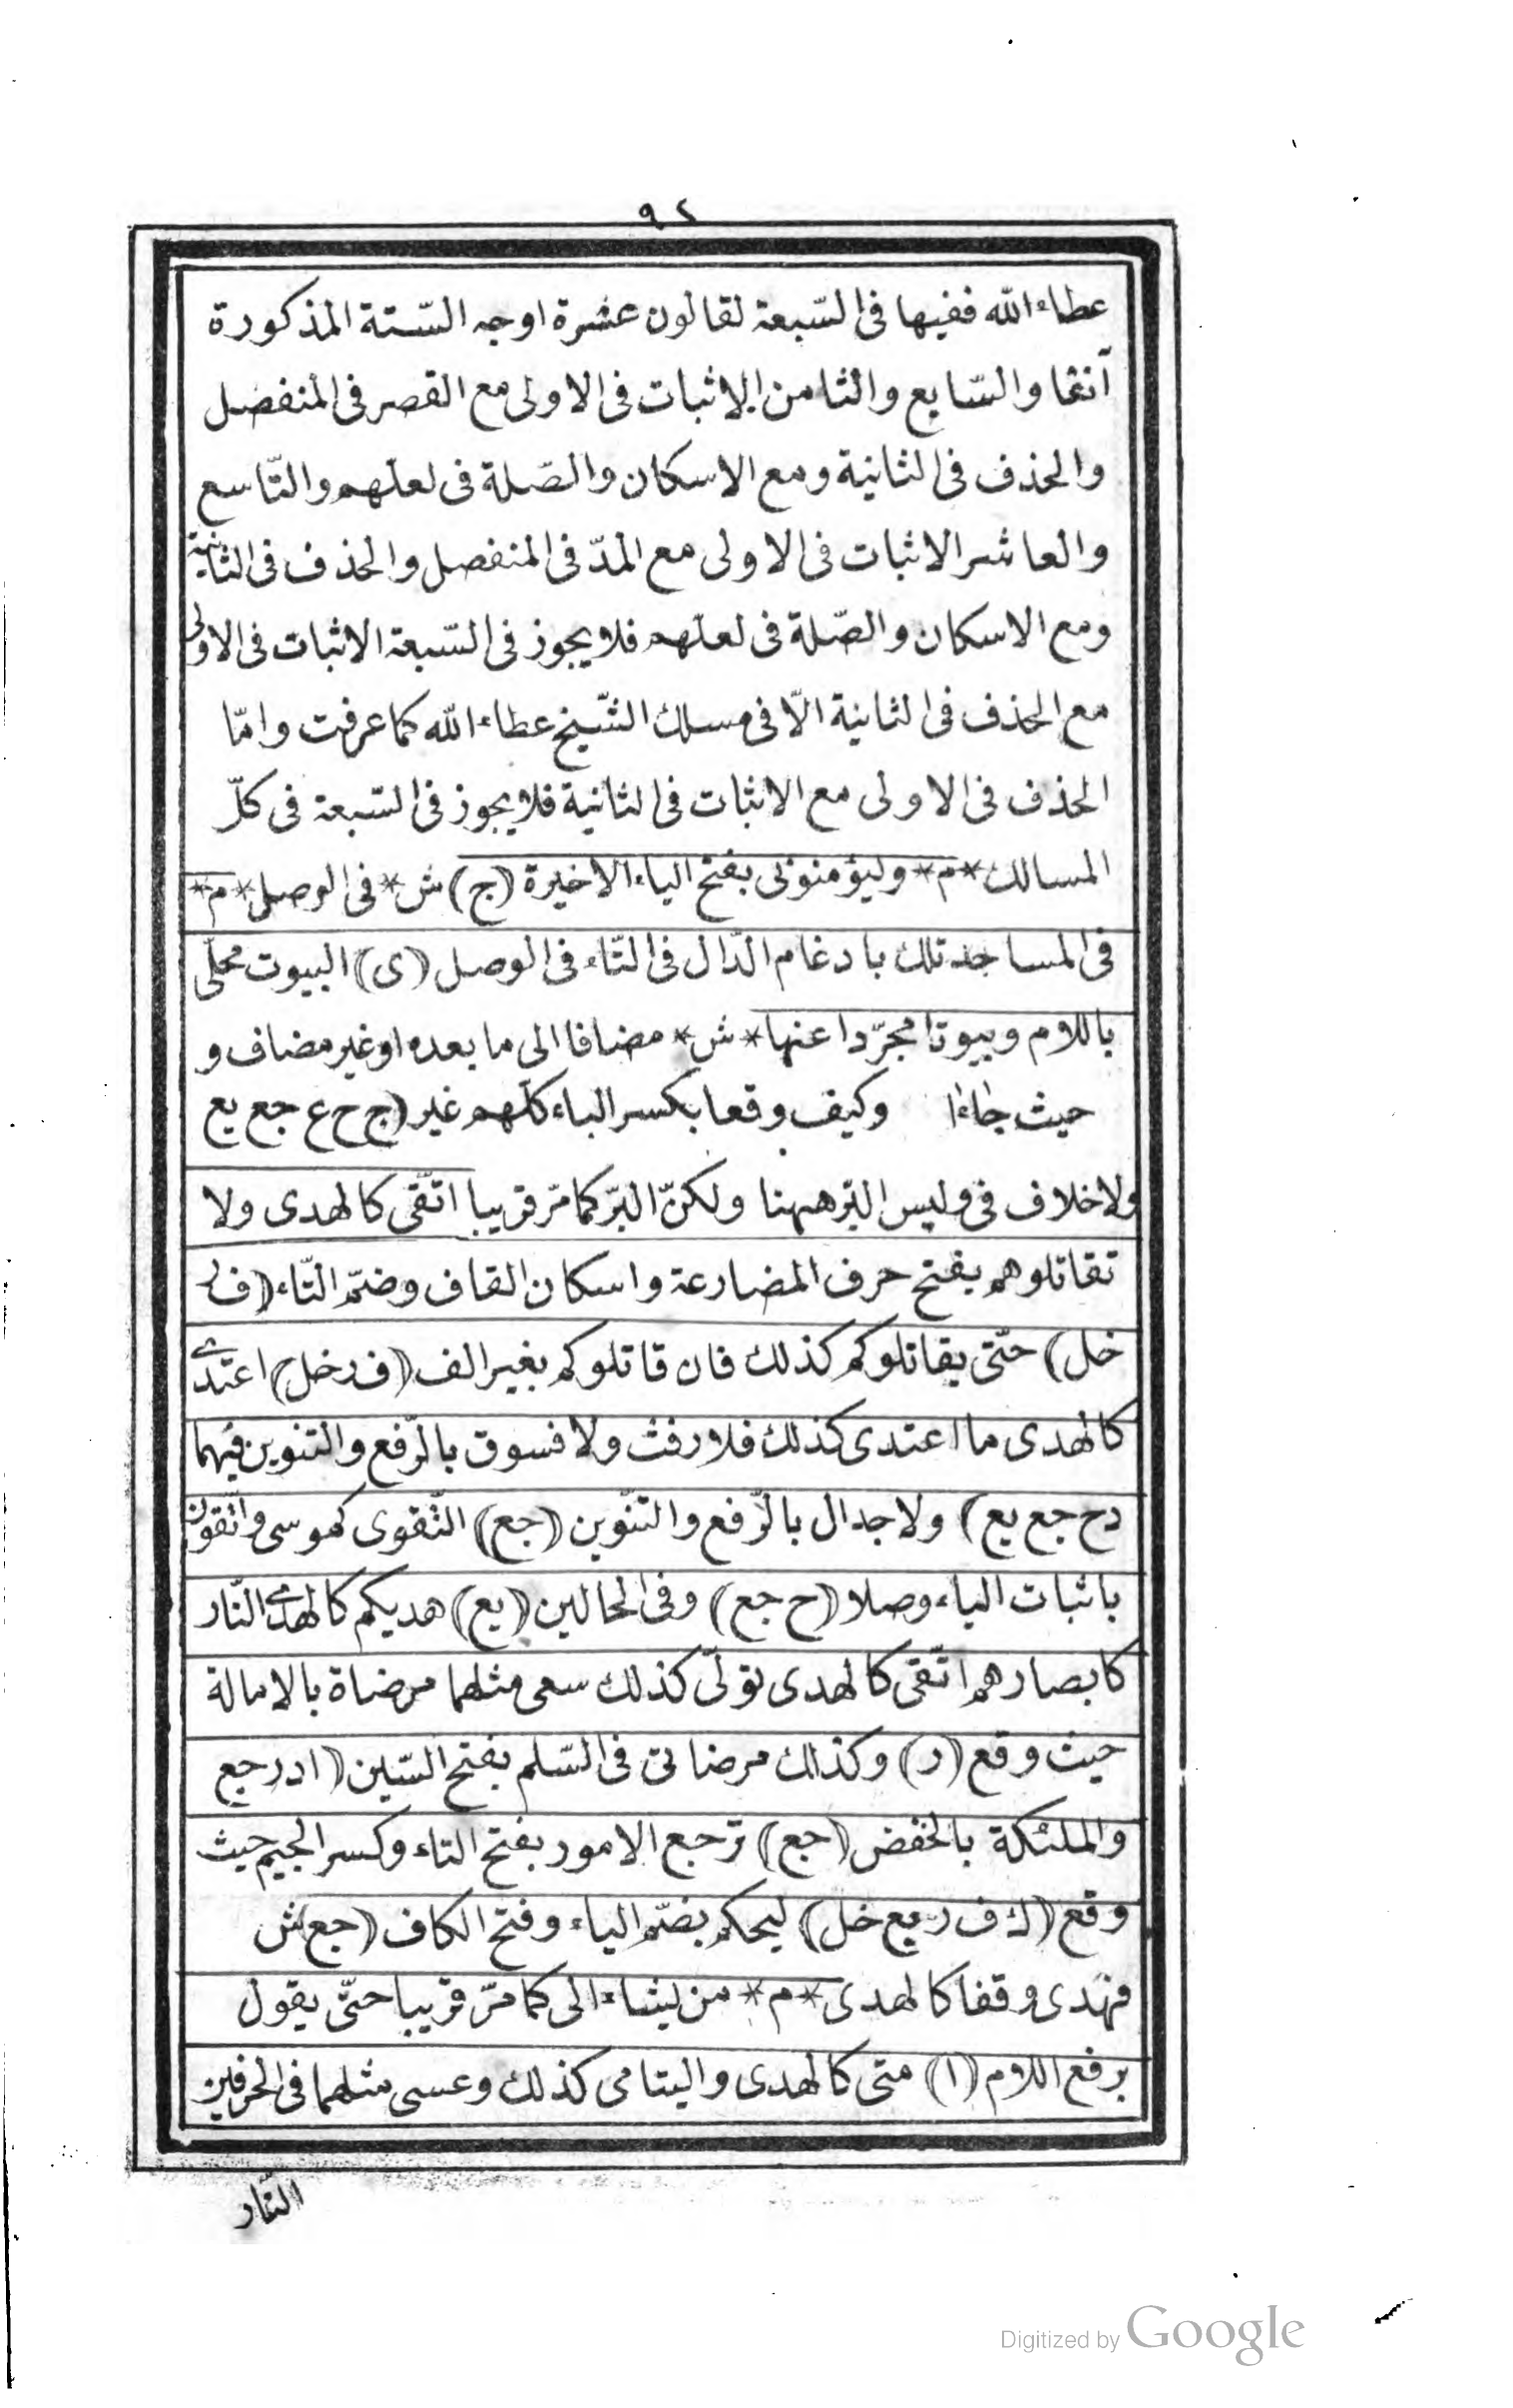 ٩٢
عطاء الله ففيها فى السّبعة لقالون عشرة اوجه السّتة المذكورة
آنفا والسّابع والثامن الاثبات فى الاولى مع القصر فى المنفصل
والحذف فى الثانية ومع الاسكان والصّلة فى لعلّهم والتّاسع
والعاشر الاثبات فى الاولى مع المدّ فى المنفصل والحذف فى الثانية
ومع الاسكان والصّلة فى لعلّهم فلا يجوز فى السّبعة الاثبات فى الاولى
مع الحذف فى الثانية الّا فى مسلك الشّيخ عطاء الله كما عرفت وامّا
الحذف فى الاولى مع الاثبات فى الثانية فلا يجوز فى السّبعة فى كلّ
المسالك *م* وليؤمنوا بى بفتح الياء الاخيرة (ج) ش* فى الوصل *م*
فى المساجد تلك بادغام الدّال فى التّاء فى الوصل (ى) البيوت محلّى
باللام وبيوتا مجرّدا عنها *ش* مضافا الى ما بعده او غير مضاف و
حيث جاءا وكيف وقعا بكسر الباء كلّهم غير (ج ح ع جع يع
ولا خلاف فى وليس البّر ههنا ولكنّ البّر كما مّر قريبا اتّقى كالهدى ولا
تقاتلوهم بفتح حرف المضارعة واسكان القاف وضمّ التّاء (ف ر
خل) حتّى يقاتلوكم كذلك فان قاتلوكم بغير الف (ف ر خل) اعتدى
كالهدى ما اعتدى كذلك فلا رفث ولا فسوق بالرّفع والتنوين فيهما
دح جع يع) ولا جدال بالرّفع والتّنوين (جع) التّقوى كموسى واتّقون
باثبات الياء وصلا (ح جع) وفى الحالين (يع) هديكم كالهدى النّار
كابصارهم اتّقى كالهدى تولّى كذلك سعى مثلهما مرضاة بالامالة
حيث وقع (ر) وكذلك مرضاتى فى السّلم بفتح السّين (ا د ر جع
والملئكة بالخفض (جع) ترجع الامور بفتح التاء وكسر الجيم حيث
وقع (ك ف ر يع خل) ليحكم بضمّ الياء وفتح الكاف (جع) ش
فهدى وقفا كالهدى *م* من يشاء الى كما مّر قريبا حتّى يقول
برفع اللام (ا) متى كالهدى واليتامى كذلك وعسى مثلهما فى الحرفين
النّار
Digitized by Google